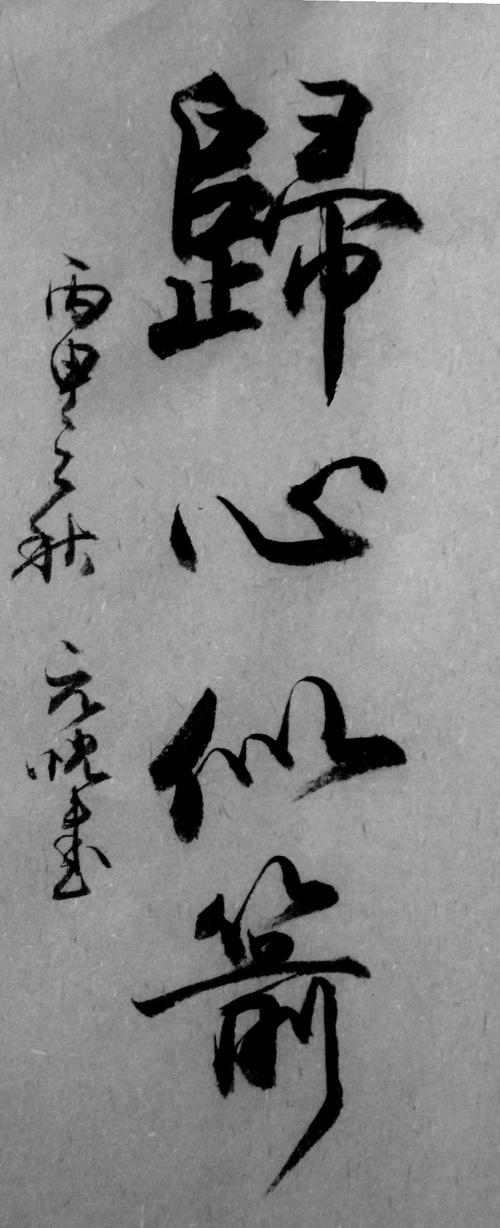 歸心似箭
丙申之秋 元悅書